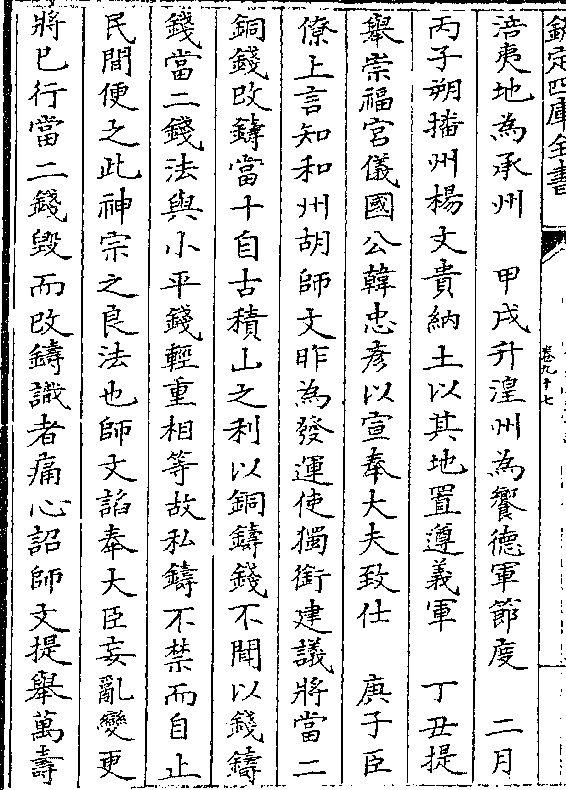 欽定四庫全書
卷九十七
涪夷地為承州　甲戌升湟州為饗德軍節度　二月
丙子朔播州楊文貴納土以其地置遵義軍　丁丑提
舉崇福宮儀國公韓忠彦以宣奉大夫致仕　庚子臣
僚上言知和州胡師文昨為發運使獨銜建議將當二
銅錢改鑄當十自古積山之利以銅鑄錢不聞以錢鑄
錢當二錢法與小平錢輕重相等故私鑄不禁而自止
民間便之此神宗之良法也師文謟奉大臣妄亂變更
將已行當二錢毀而改鑄識者痛心詔師文提舉萬壽